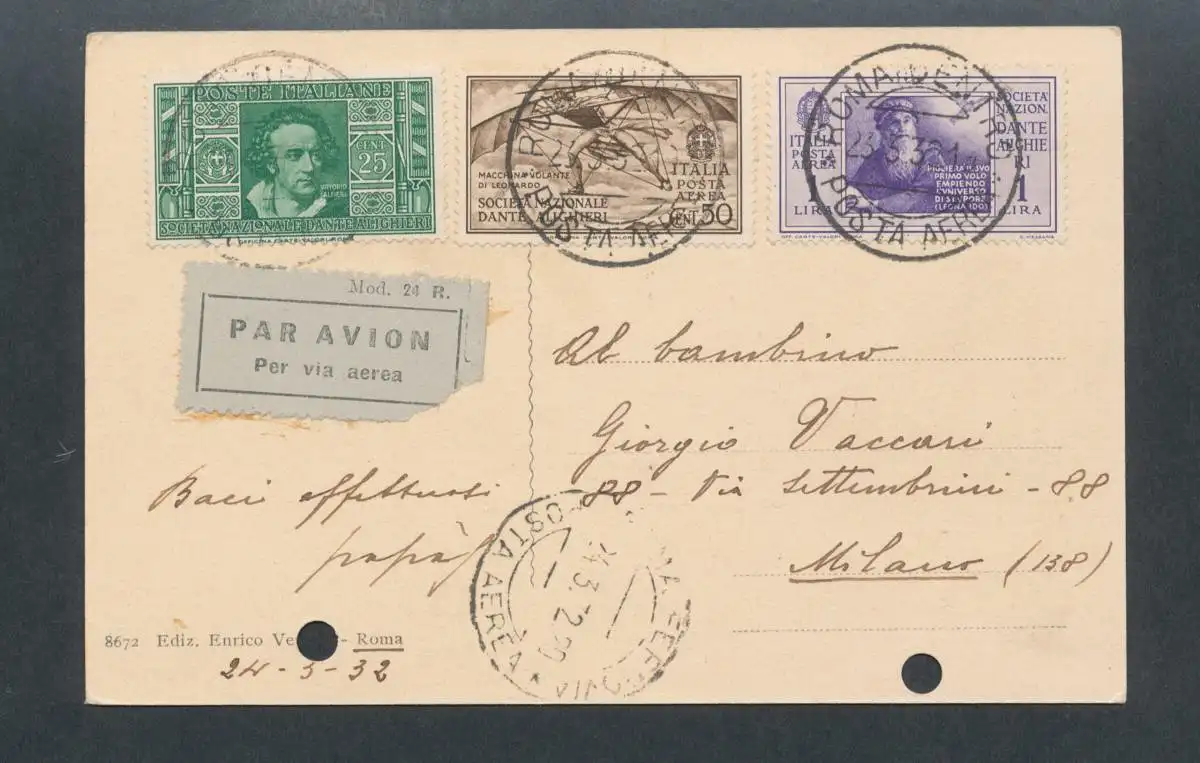 POSTE ITALIANE
CENT
25
VITTORIO
ALFIERI
SOCIETÀ NAZIONALE DANTE ALIGHIERI
MACCHINA VOLANTE
DI LEONARDO
SOCIETÀ NAZIONALE
DANTE ALIGHIERI
ITALIA
POSTA
AEREA
CENT 50
ITALIA
POSTA
AEREA
1
LIRA
SOCIETÀ
NAZION.
DANTE
ALIGHIE
RI
1
LIRA
PIGLIERÀ IL SUO
PRIMO VOLO
EMPIENDO
L'UNIVERSO
DI STUPORE
(LEONARDO)
ROMA (CENTRO)
POSTA AEREA
Mod. 24 R.
PAR AVION
Per via aerea
Al bambino
Giorgio Vaccari
88 - Via Settembrini - 88
Milano (138)
Baci affettuosi
papà
POSTA AEREA
FERROVIA
8672 Ediz. Enrico Ve - Roma
24-3-32